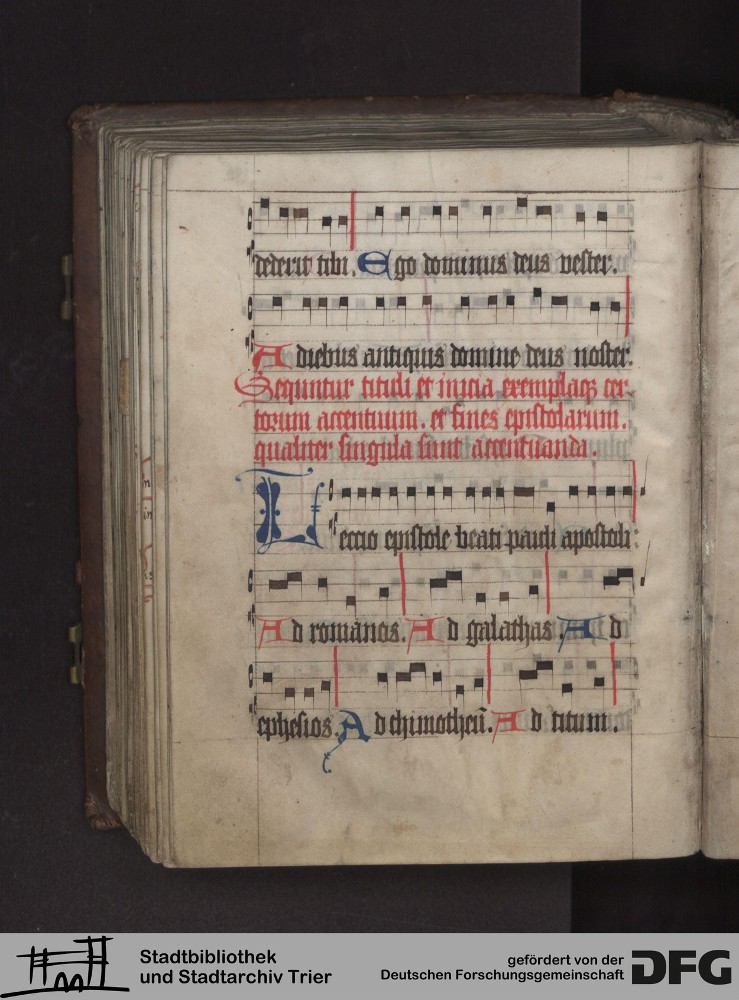 dederit tibi. Ego dominus deus vester.
A diebus antiquis domine deus noster.
Sequntur tituli et inicia exemplaqꝫ cer-
torum accentuum. et fines epistolarum.
qualiter singula sunt accentuanda.
Leccio epistole beati pauli apostoli:
Ad romanos. Ad galathas. Ad
ephesios. Ad thimotheū. Ad titum.
Stadtbibliothek
und Stadtarchiv Trier
gefördert von der
Deutschen Forschungsgemeinschaft
DFG